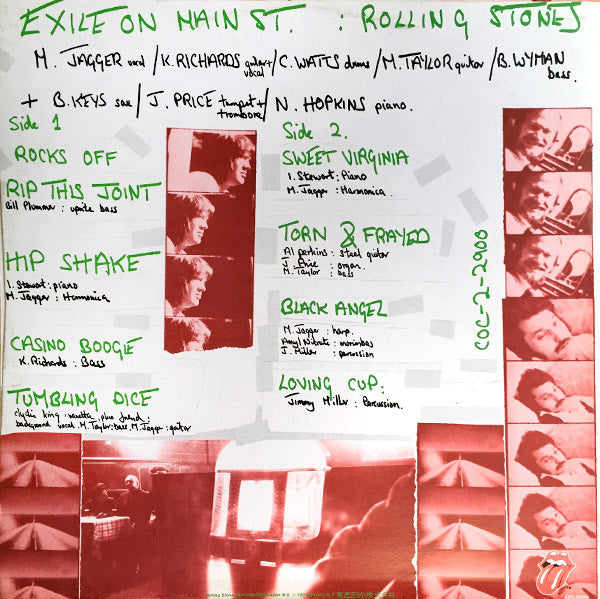 EXILE ON MAIN ST. : ROLLING STONES
M. JAGGER vocal / K. RICHARDS guitar + vocal / C. WATTS drums / M. TAYLOR guitar / B. WYMAN bass.
+ B. KEYS sax / J. PRICE trumpet + trombone / N. HOPKINS piano.
Side 1
ROCKS OFF
RIP THIS JOINT
Bill Plummer : uprite bass
HIP SHAKE
I. Stewart : piano
M. Jagger : Harmonica
CASINO BOOGIE
K. Richards : Bass
TUMBLING DICE
clydie king . vanetta . plus friend :
background vocal . M. Taylor : bass . M. Jagger : guitar
Side 2.
SWEET VIRGINIA
I. Stewart : Piano
M. Jagger : Harmonica.
TORN & FRAYED
Al perkins : steel guitar
J. Price : organ.
M. Taylor : bass
BLACK ANGEL
M. Jagger : harp.
Amyl Nitrate : marimbas
J. Miller : percussion
LOVING CUP :
Jimmy Miller : Percussion.
COC-2-2900